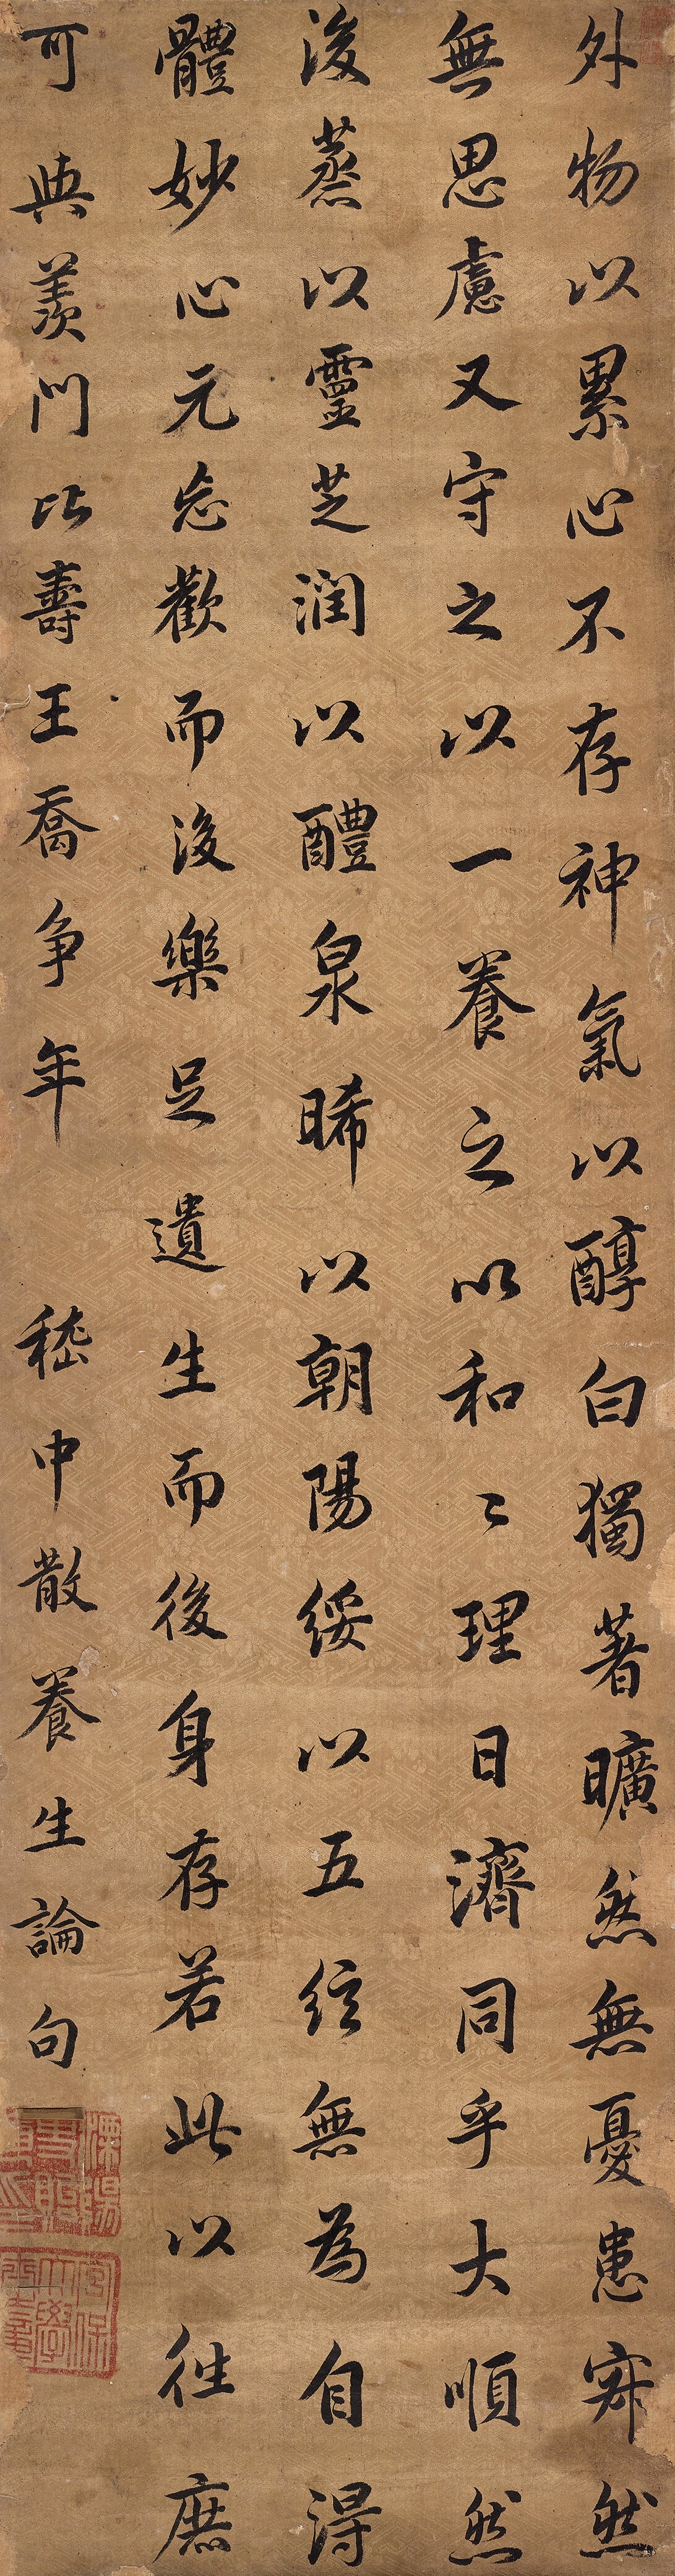 外物以累心不存神氣以醇白獨著曠然無憂患寂然
無思慮又守之以一養之以和〻理日濟同乎大順然
後蒸以靈芝潤以醴泉晞以朝陽綏以五絃無為自得
體妙心元忘歡而後樂足遺生而後身存若此以往庶
可與羨門比壽王喬爭年 嵇中散養生論句
溧陽
宮保